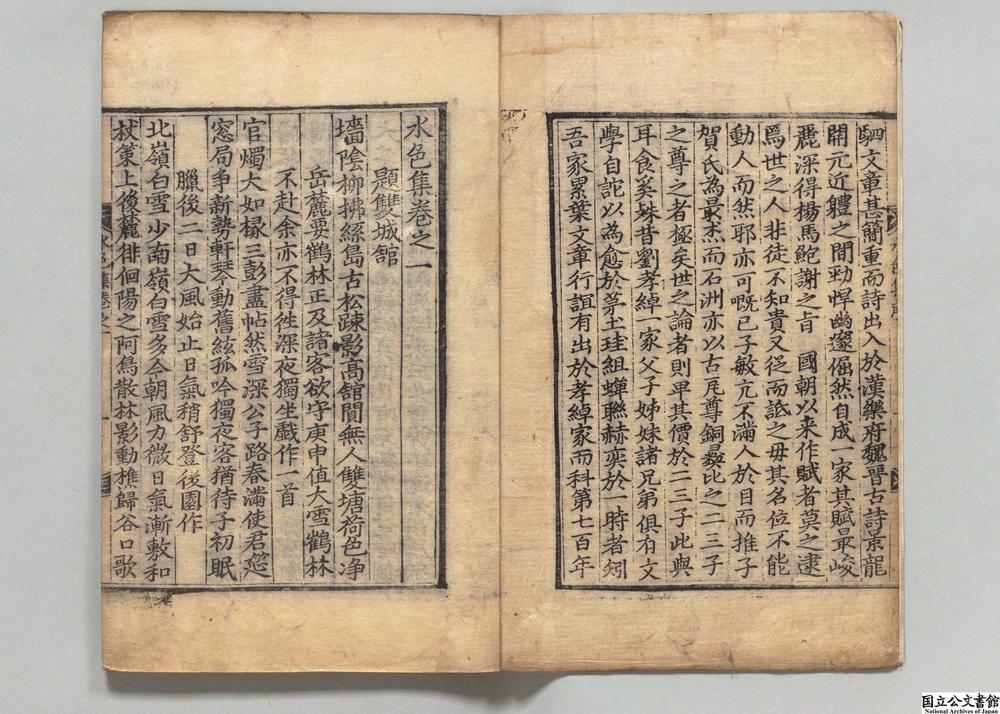 駟文章甚簡重而詩出入於漢樂府魏晉古詩景龍
開元近軆之間勁悍幽邃倔然自成一家其賦最峻
麗深得揚馬鮑謝之旨 國朝以来作賦者莫之逮
焉世之人非徒不知貴又從而詆之毋其名位不能
動人而然耶亦可嘅已子敏亢不滿人於目而推子
賀氏為最杰而石洲亦以古尾尊銅彛比之二三子
之尊之者極矣世之論者則卑其價於二三子此與
耳食奚殊昔劉孝綽一家父子姊妹諸兄弟俱有文
學自詫以為愈於茅土珪組蟬聯赫奕於一時者矧
吾家累葉文章行誼有出於孝綽家而科第七百年
水色集卷之一
題雙城舘
墻陰柳拂絲島古松疎影高舘闃無人雙塘荷色净
岳麓要鶴林正及諸客欲守庚申值大雪鶴林
不赴余亦不得徃深夜獨坐戲作一首
官燭大如椽三彭盡帖然雪深公子路春滿使君筵
窓局争新勢軒琴動舊絃孤吟獨夜客猶待子初眠
臘後二日大風始止日氣稍舒登後園作
北嶺白雪少南嶺白雪多今朝風力微日氣漸敷和
杖策上後麓徘徊陽之阿鳥散林影動樵歸谷口歌
水色集卷之一
一
国立公文書館
National Archives of Japan